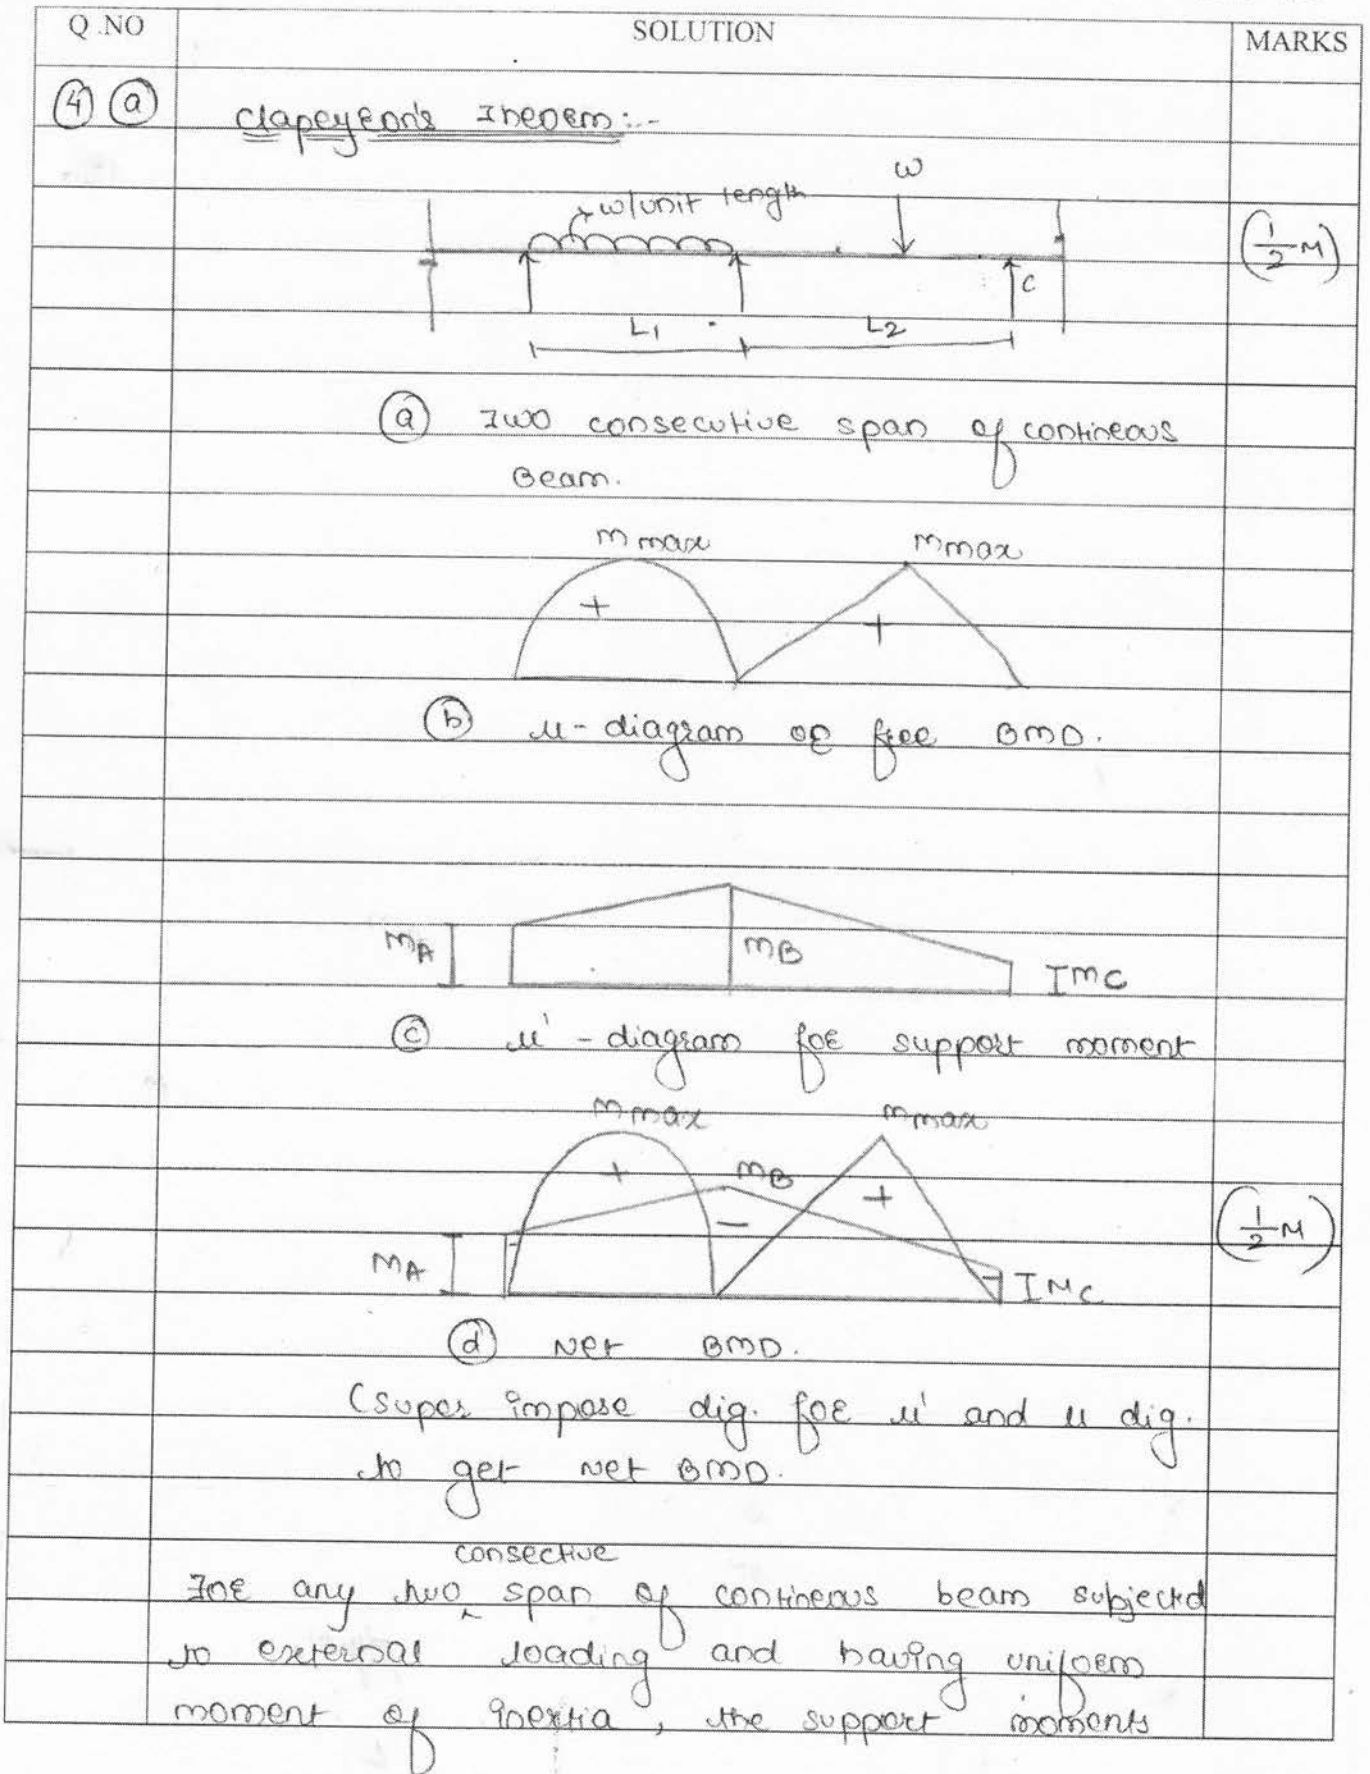 Q.NO SOLUTION MARKS
4 a Clapeyron's Theorem:-
W
w/unit length
(1/2 M)
C
L1 L2
a Two consecutive span of contineous
Beam.
Mmax Mmax
+ +
b μ-diagram or free BMD.
MA MB MC
c μ'-diagram for support moment
Mmax Mmax
+ MB +
− (1/2 M)
MA MC
d Net BMD.
(super impose dig. for μ' and μ dig.
to get net BMD.
consective
For any two span of contineous beam subjected
to external loading and having uniform
moment of inertia, the support moments